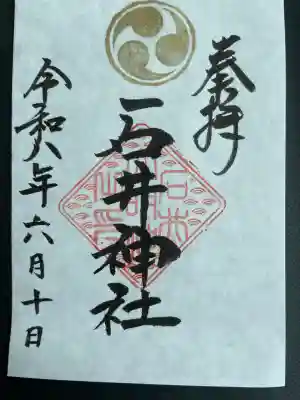 奉拝
石井神社
令和八年六月十日